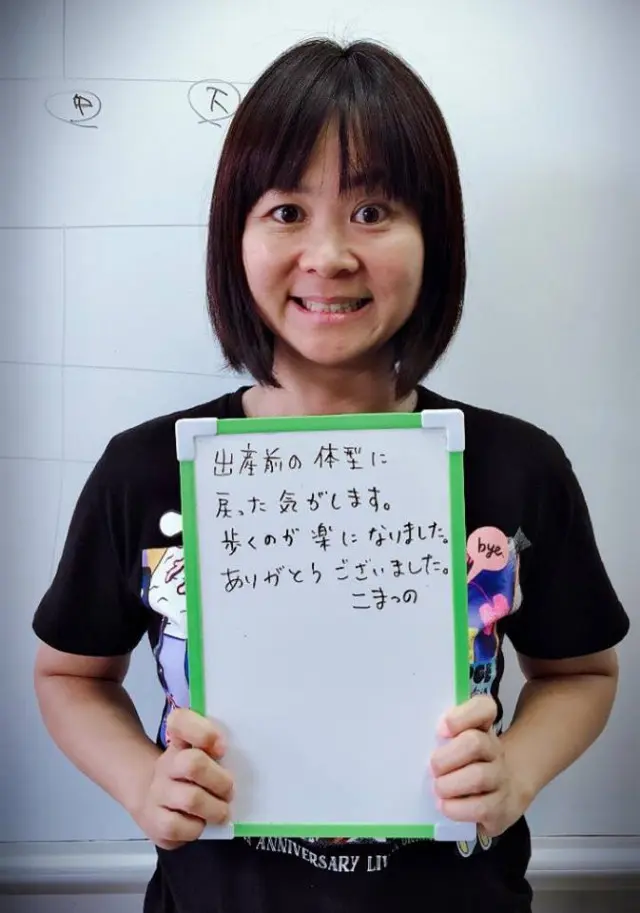 中
下
出産前の体型に
戻った気がします。
歩くのが楽になりました。
ありがとうございました。
こまつの
bye.
ANNIVERSARY LIV